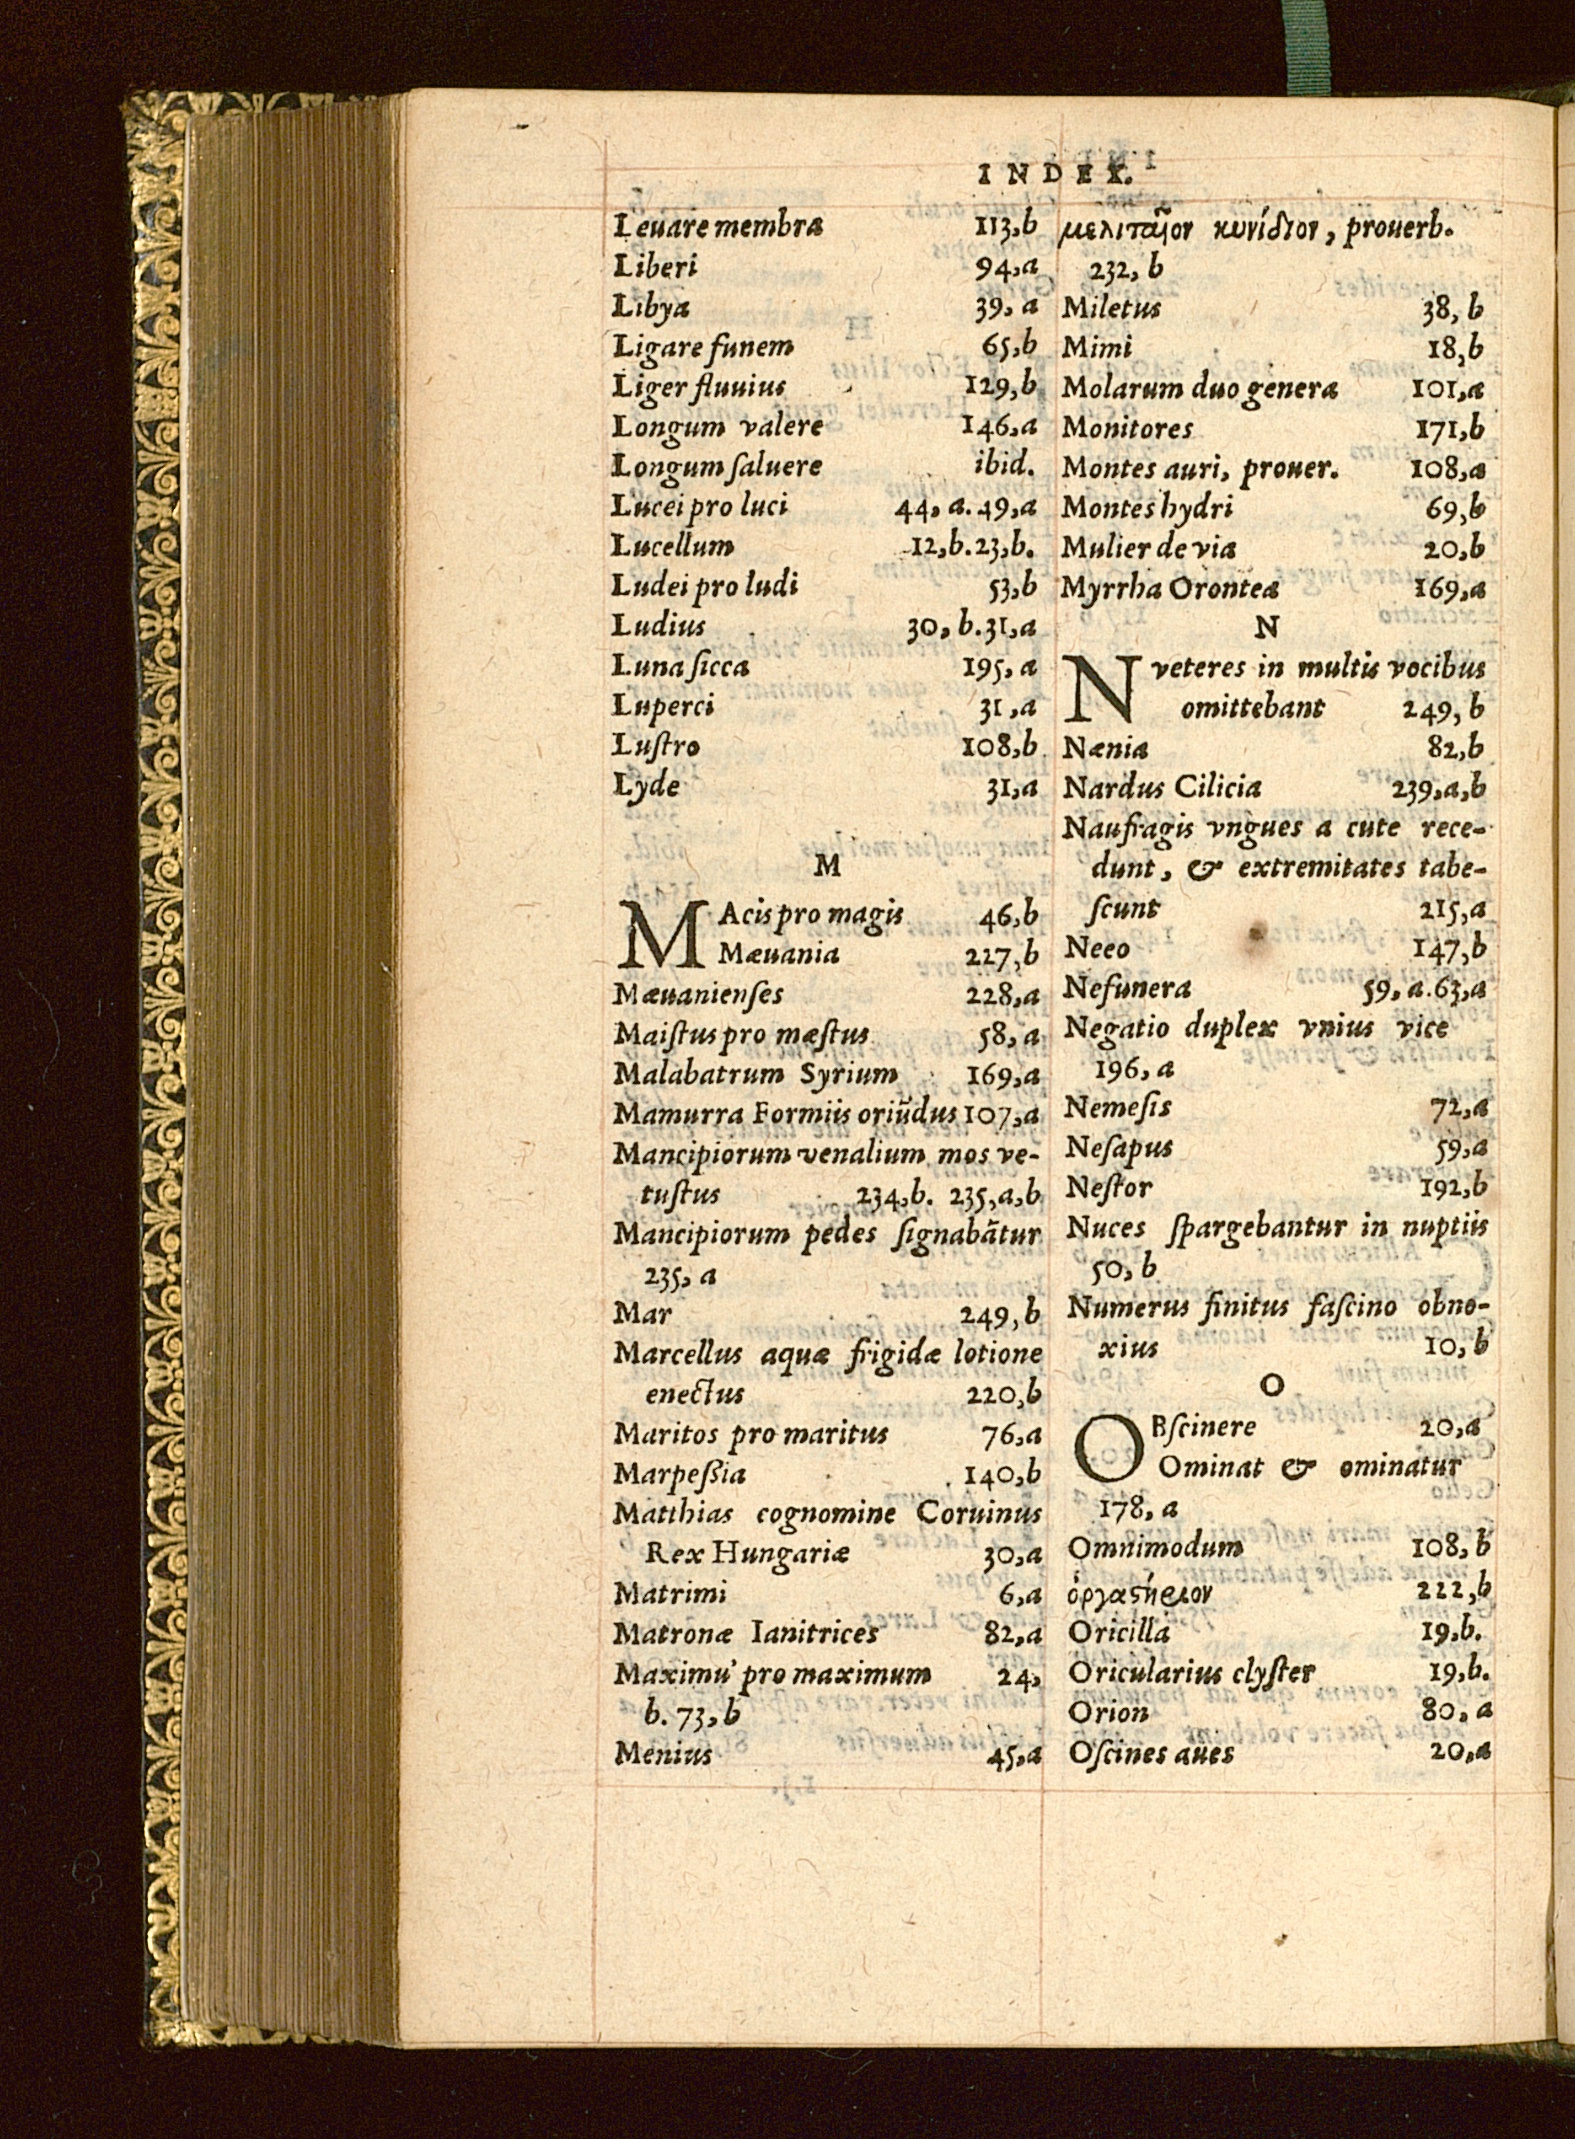 INDEX.
Leuare membra 113,b
Liberi 94,a
Libya 39, a
Ligare funem 65,b
Liger fluuius 129,b
Longum valere 146,a
Longum ſaluere ibid.
Lucei pro luci 44, a. 49,a
Lucellum 12,b.23,b.
Ludei pro ludi 53,b
Ludius 30, b.31,a
Luna ſicca 195, a
Luperci 31,a
Luſtro 108,b
Lyde 31,a
M
MAcis pro magis 46,b
Mæuania 227,b
Mæuanienſes 228,a
Maiſtus pro mæſtus 58, a
Malabatrum Syrium 169,a
Mamurra Formiis oriũdus 107,a
Mancipiorum venalium mos ve-
tuſtus 234,b. 235,a,b
Mancipiorum pedes ſignabãtur
235, a
Mar 249, b
Marcellus aquæ frigidæ lotione
enectus 220,b
Maritos pro maritus 76,a
Marpeßia 140,b
Matthias cognomine Coruinus
Rex Hungariæ 30,a
Matrimi 6,a
Matronæ Ianitrices 82,a
Maximu' pro maximum 24,
b. 73, b
Menius 45,a
μελιταῖον κυνίδιον, prouerb.
232, b
Miletus 38, b
Mimi 18,b
Molarum duo genera 101,a
Monitores 171,b
Montes auri, prouer. 108,a
Montes hydri 69,b
Mulier de via 20,b
Myrrha Orontea 169,a
N
N veteres in multis vocibus
omittebant 249, b
Nænia 82,b
Nardus Cilicia 239,a,b
Naufragis vngues a cute rece-
dunt, & extremitates tabe-
ſcunt 215,a
Neeo 147,b
Nefunera 59, a.63,a
Negatio duplex vnius vice
196, a
Nemeſis 72,a
Neſapus 59,a
Neſtor 192,b
Nuces ſpargebantur in nuptiis
50, b
Numerus finitus faſcino obno-
xius 10, b
O
OBſcinere 20,a
Ominat & ominatur
178, a
Omnimodum 108, b
ὀργαστήριον 222,b
Oricilla 19,b.
Oricularius clyſter 19,b.
Orion 80, a
Oſcines aues 20,a